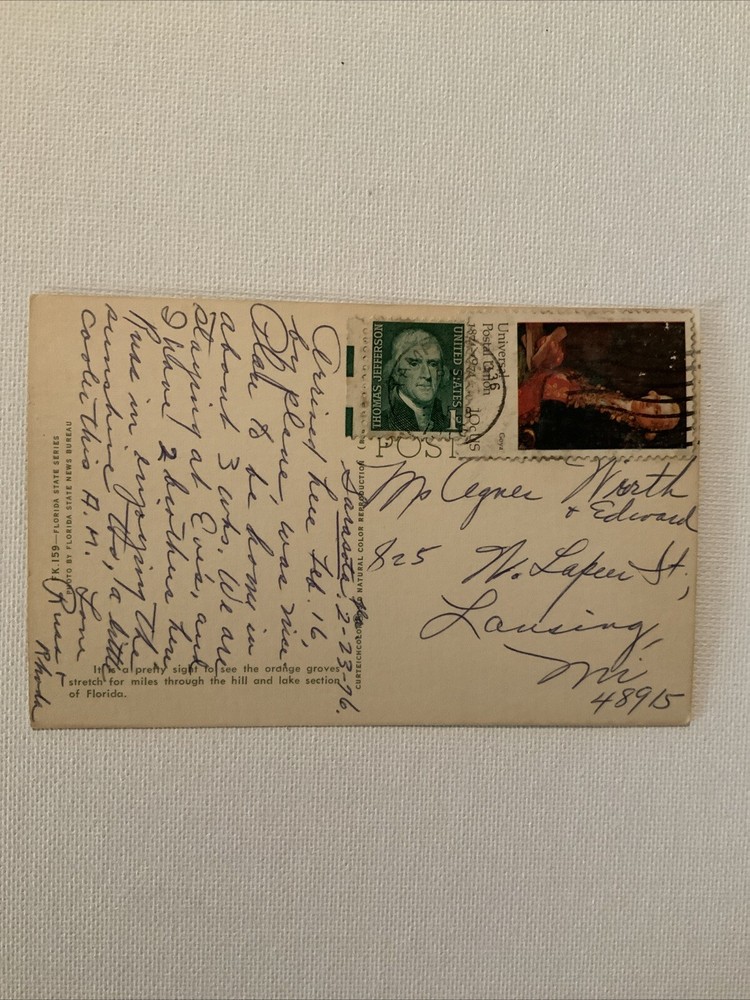 Sarasota, Fla. 2-23-76.
Arrived here Feb. 16
by plane, was nice
Plan to be home in
about 3 wks. We are
staying at Eva's, and
I have 2 brothers here
Russ in enjoying the
sunshine tho, a little
cooler this A.M.
Love
Russ +
Rhoda
It's a pretty sight to see the orange groves
stretch for miles through the hill and lake section
of Florida.
FK.159—FLORIDA STATE SERIES
PHOTO BY FLORIDA STATE NEWS BUREAU
CURTEICHCOLOR NATURAL COLOR REPRODUCTION
POST
THOMAS JEFFERSON
UNITED STATES
1¢
Universal
Postal Union
1874-1974
10cUS
Goya
Ms Agnes Worth
+ Edward
825 N. Lapeer St,
Lansing,
Mi
48915